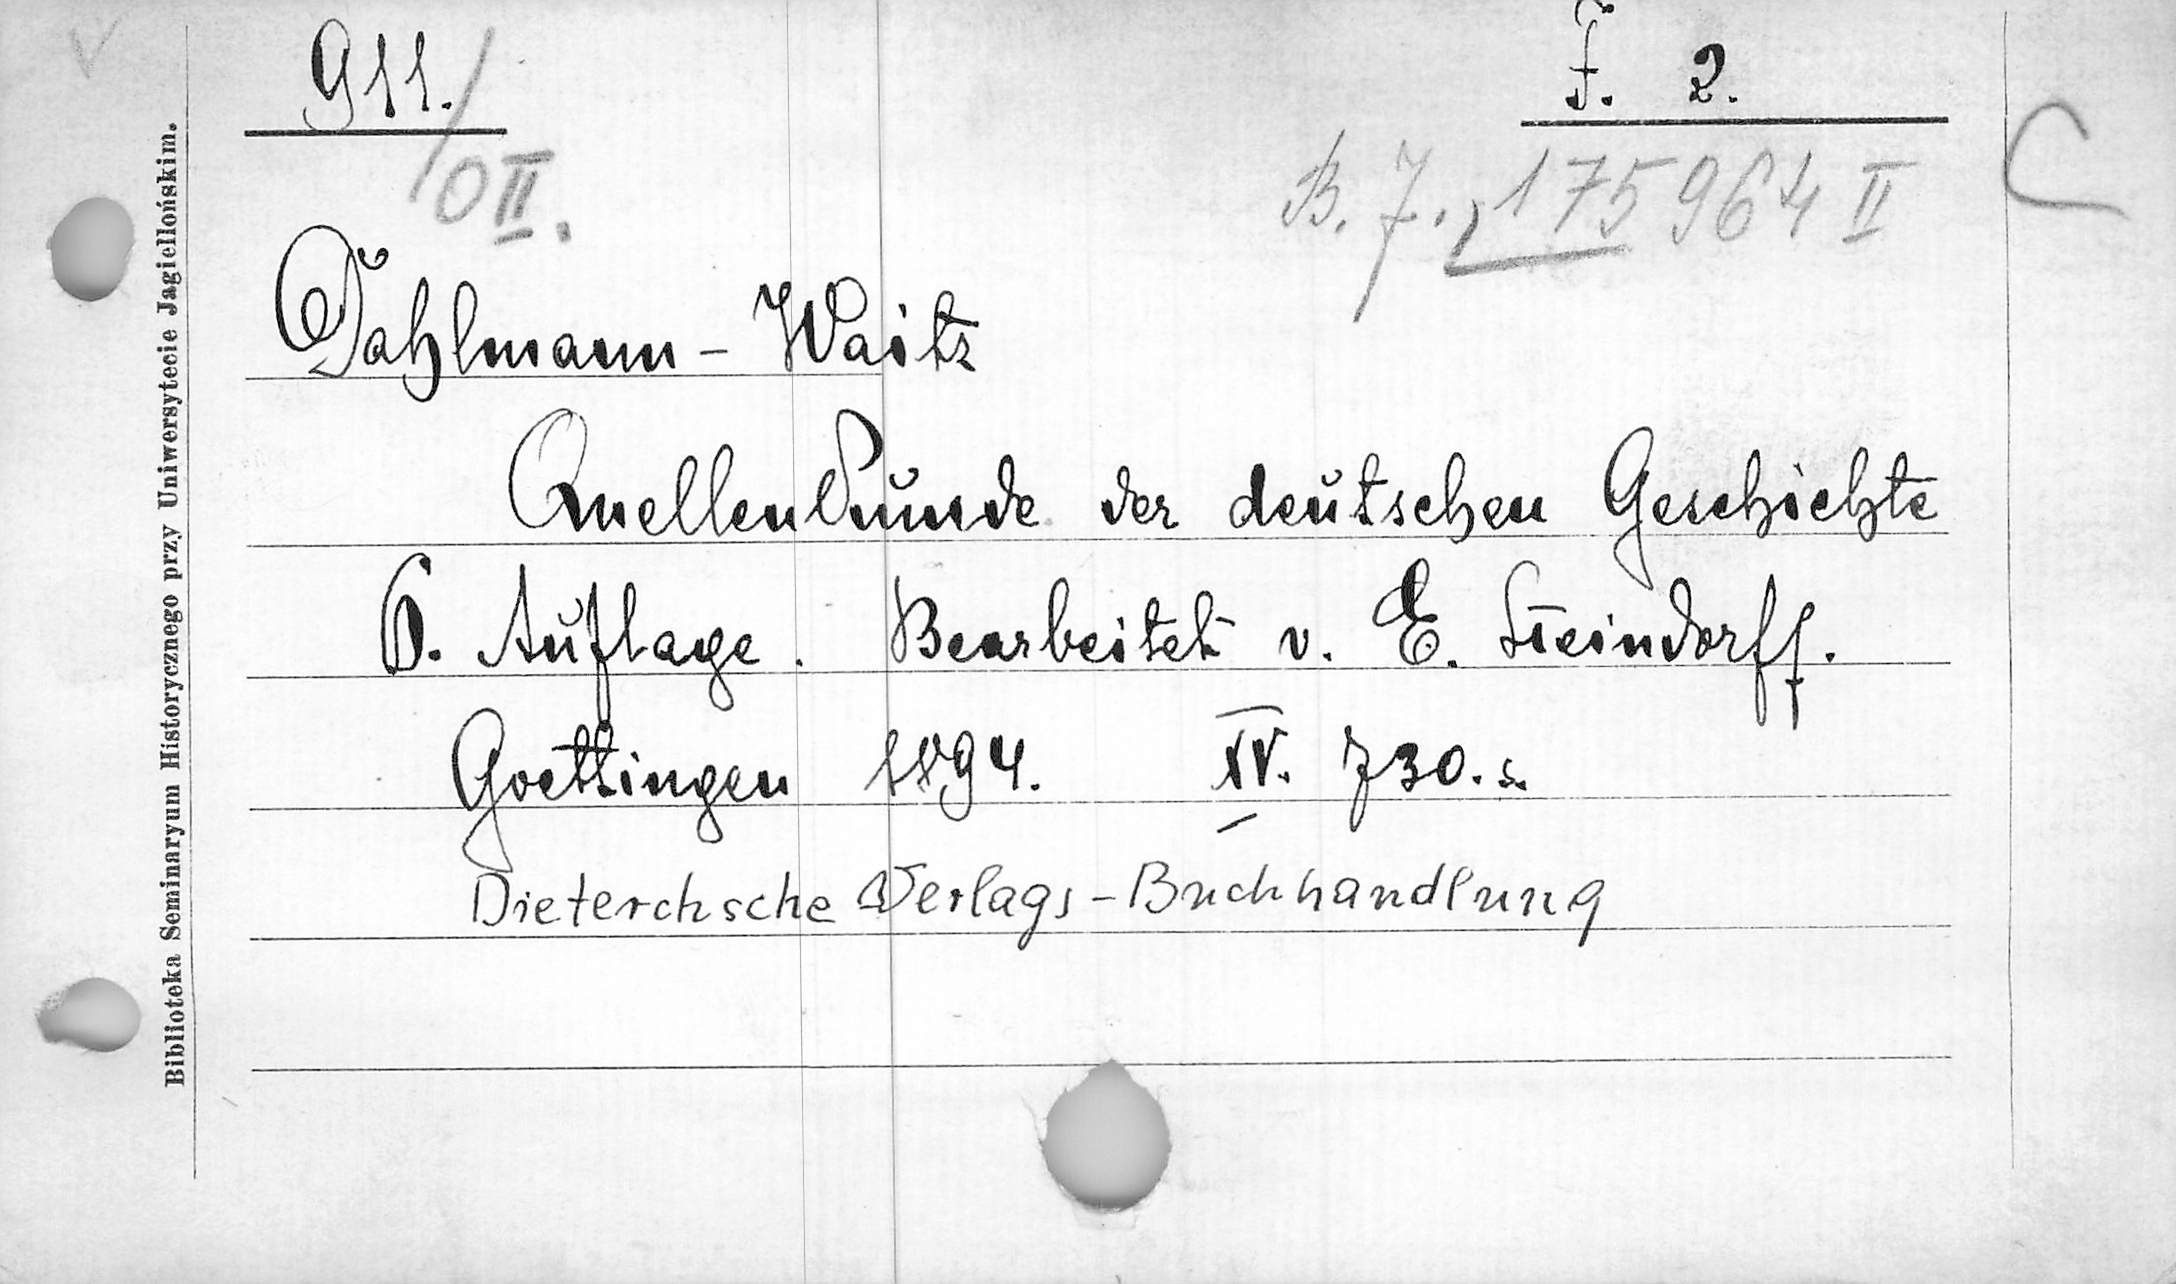 911./ F. 2.
OII. B. J. 175964 II C
Dahlmann - Waitz
Quellenkunde der deutschen Geschichte
6. Auflage. Bearbeitet v. E. Steindorff.
Goettingen 1894. IV. 730. s.
Dieterchsche Verlags - Buchhandlung
Biblioteka Seminaryum Historycznego przy Uniwersytecie Jagiellońskim.